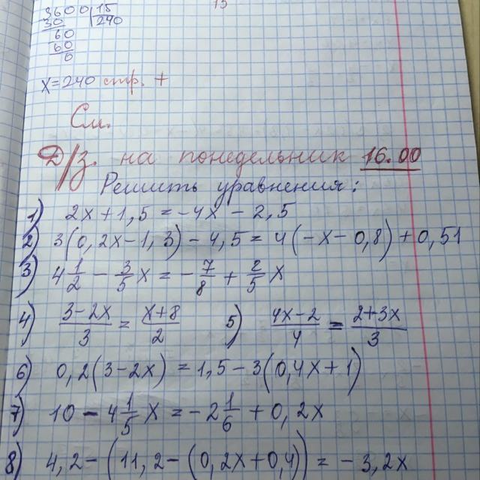 3600 | 15
30 | 240
60
60
0
x=240 стр. +
См.
Д/з. на понедельник 16.00
Решить уравнения:
1) 2x+1,5=-4x-2,5
2) 3(0,2x-1,3)-4,5=4(-x-0,8)+0,51
3) 4 1/2 - 3/5 x = -7/8 + 2/5 x
4) (3-2x)/3 = (x+8)/2 5) (4x-2)/4 = (2+3x)/3
6) 0,2(3-2x)=1,5-3(0,4x+1)
7) 10-4 1/5 x = -2 1/6 + 0,2x
8) 4,2-(11,2-(0,2x+0,4)) = -3,2x